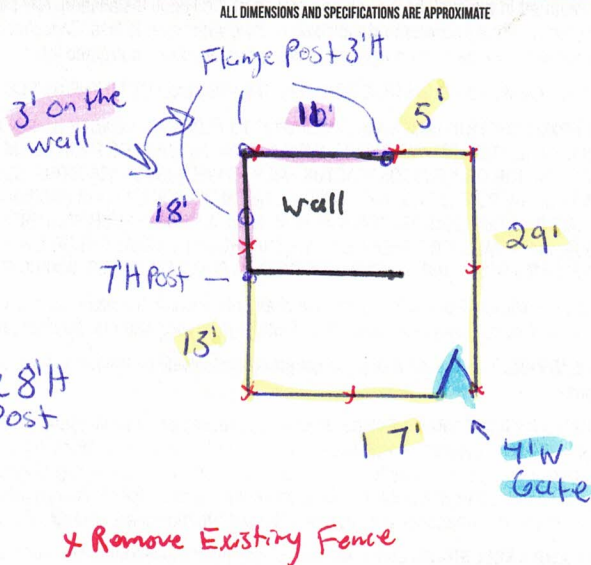 ALL DIMENSIONS AND SPECIFICATIONS ARE APPROXIMATE
Flange Post 3'H
3' on the
wall
16'
5'
18'
wall
29'
7'H Post
13'
8'H
Post
17'
4'W
Gate
x Remove Existing Fence